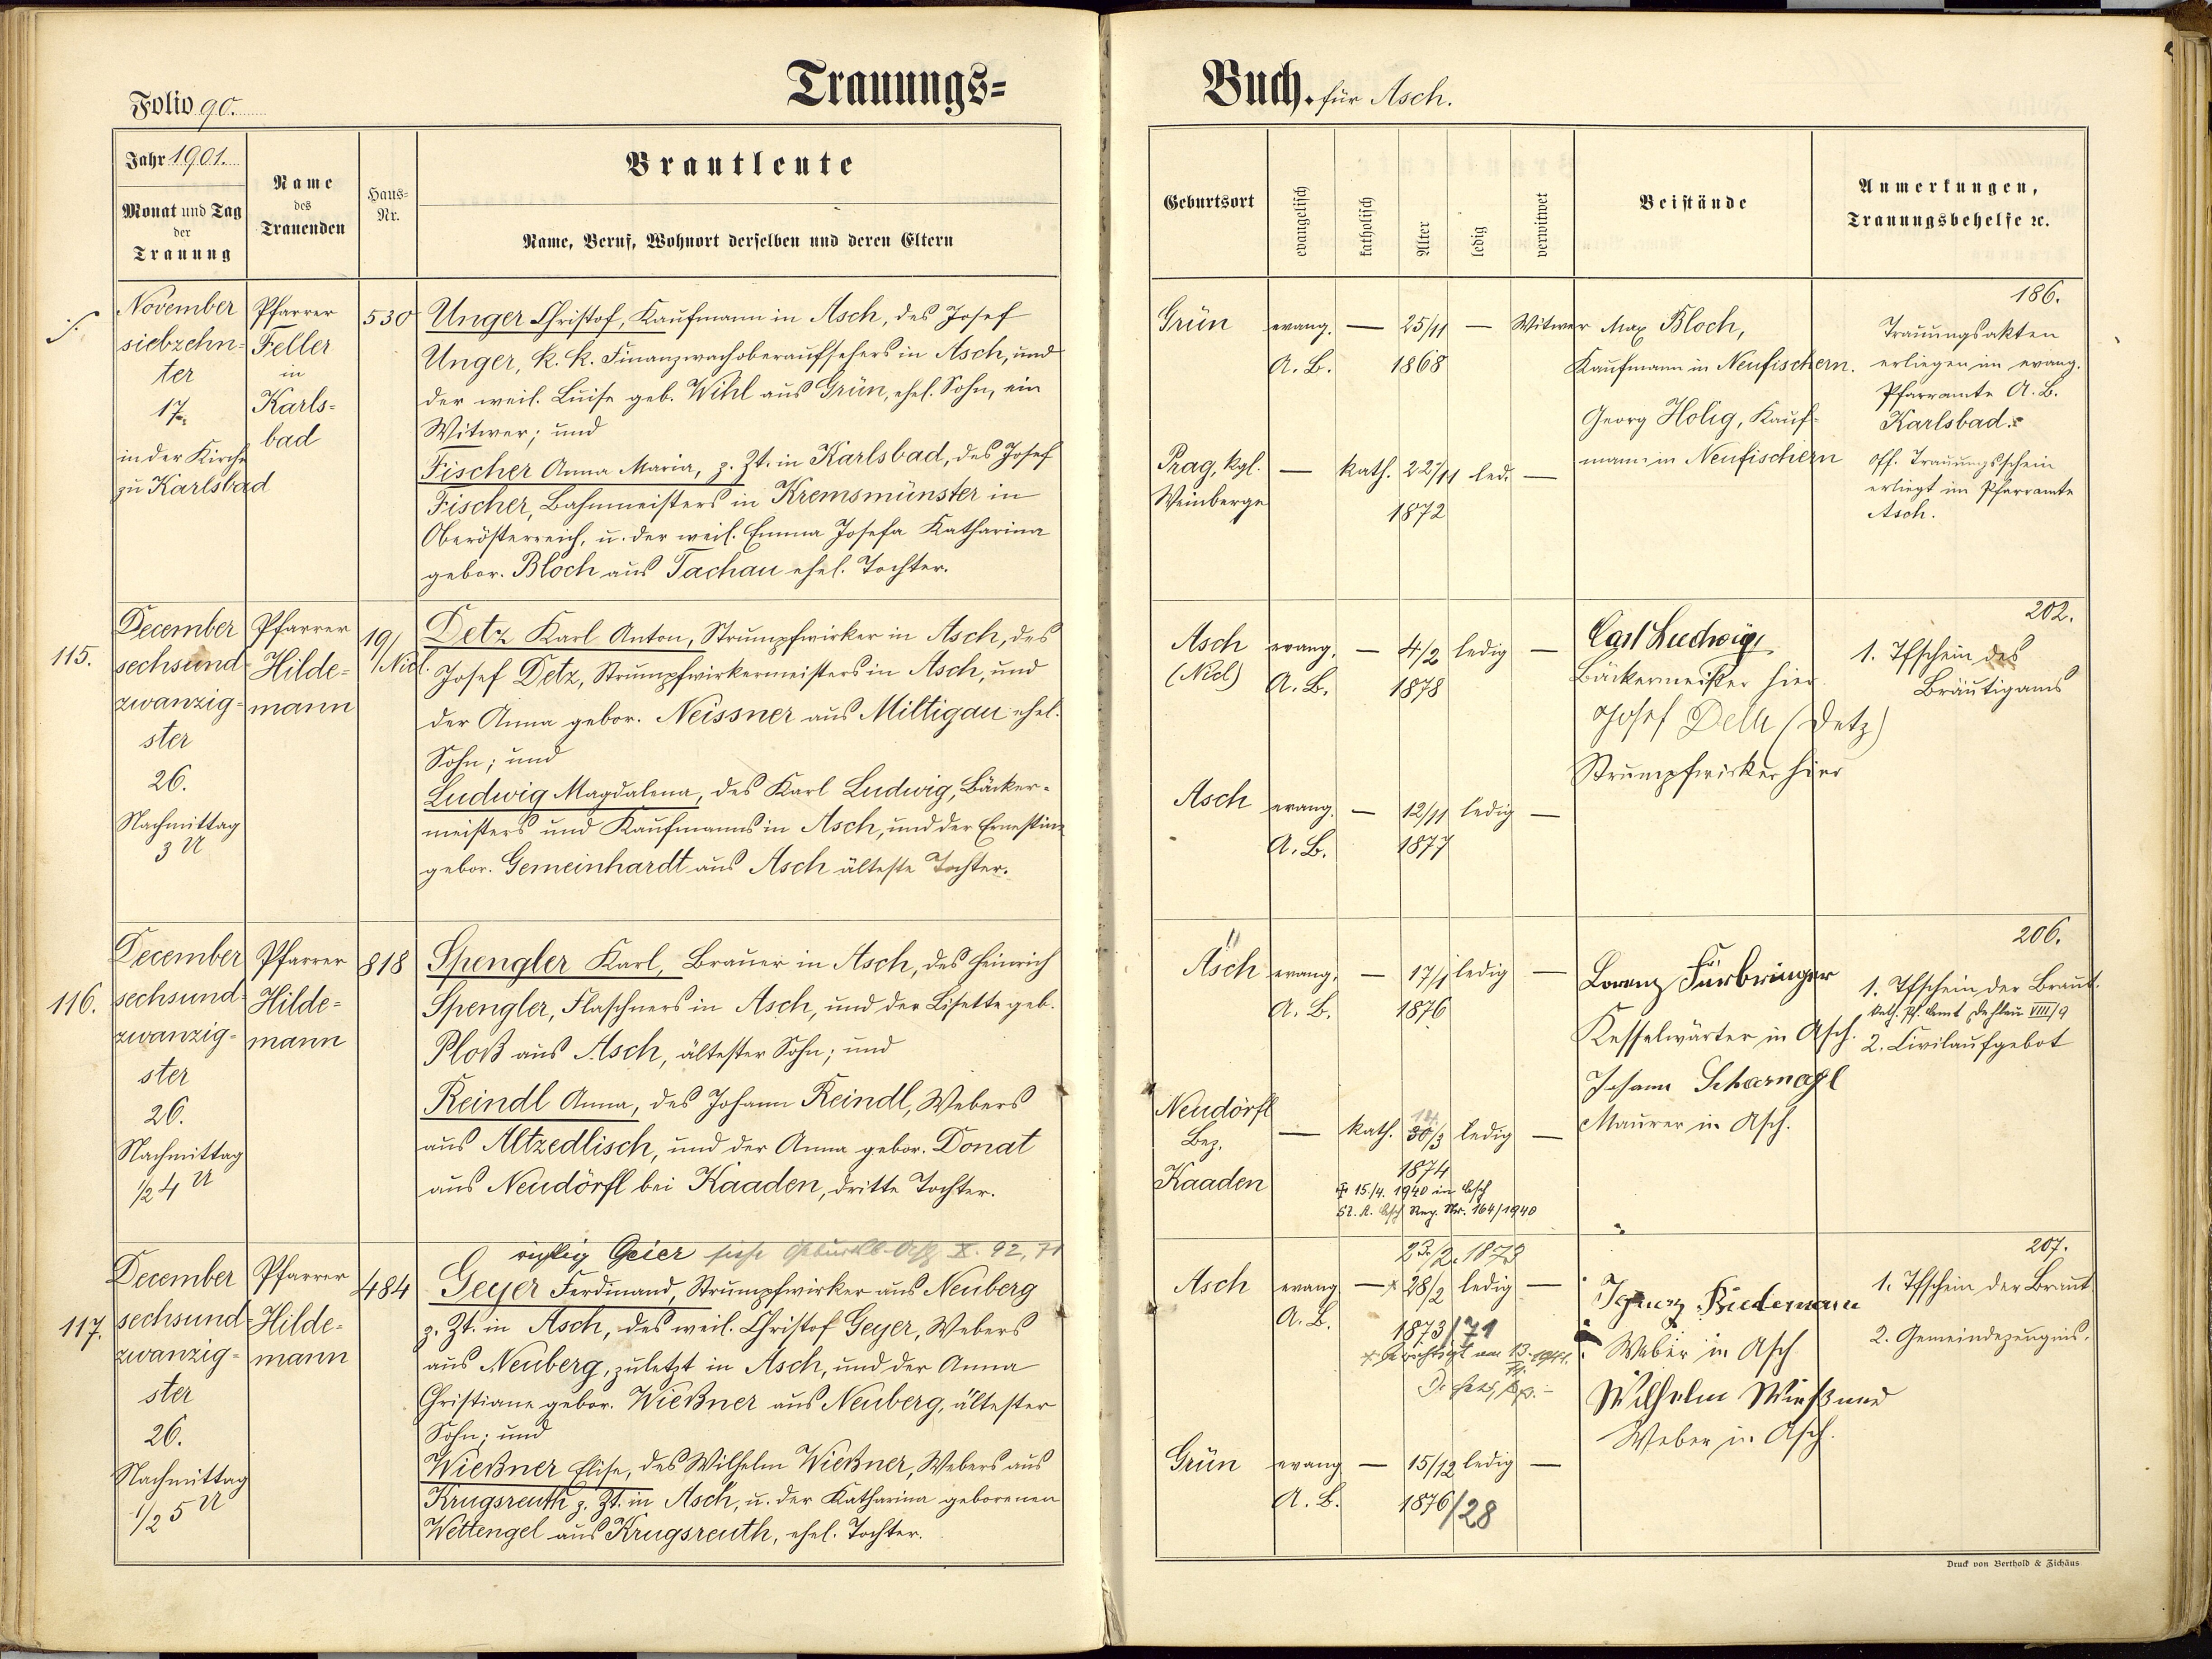 Folio 90.
Trauungs=
Buch. für Asch.
Jahr 1901.
Monat und Tag
der
Trauung
Name
des
Trauenden
Haus=
Nr.
Brautleute
Name, Beruf, Wohnort derselben und deren Eltern
Geburtsort
evangelisch
katholisch
Alter
ledig
verwitwet
Beistände
Anmerkungen,
Trauungsbehelfe ꝛc.
November
siebzehn=
ter
17.
in der Kirche
zu Karlsbad
Pfarrer
Feller
in
Karls=
bad
530
Unger Christof, Kaufmann in Asch, des Josef
Unger, k. k. Finanzwachoberaufsehers in Asch, und
der weil. Luise geb. Wihl aus Grün, ehel. Sohn, ein
Witwer; und
Fischer Anna Maria, z. Zt. in Karlsbad, des Josef
Fischer, Bahnmeisters in Kremsmünster in
Oberösterreich, u. der weil. Emma Josefa Katharina
gebor. Bloch aus Tachau ehel. Tochter.
Grün evang. — 25/11 — Witwer
A. B. 1868
Prag, kgl. — kath. 22/11 led. —
Weinberge 1872
Max Bloch,
Kaufmann in Neufischern.
Georg Holig, Kauf=
mann in Neufischern
186.
Trauungsakten
erliegen im evang.
Pfarramte A. B.
Karlsbad.
Off. Trauungsschein
erliegt im Pfarramte
Asch.
115.
December
sechsund=
zwanzig=
ster
26.
Nachmittag
3 U
Pfarrer
Hilde=
mann
19/
Nicl.
Detz Karl Anton, Strumpfwirker in Asch, des
Josef Detz, Strumpfwirkermeisters in Asch, und
der Anna gebor. Neissner aus Miltigau ehel.
Sohn; und
Ludwig Magdalena, des Karl Ludwig, Bäcker=
meisters und Kaufmanns in Asch, und der Ernestine
gebor. Gemeinhardt aus Asch älteste Tochter.
Asch evang. — 4/2 ledig —
(Nicl) A. B. 1878
Asch evang. — 12/11 ledig —
A. B. 1877
Carl Ludwig,
Bäckermeister hier.
Josef (Detz)
Strumpfwirker hier
202.
1. Tfschein des
Bräutigams
116.
December
sechsund=
zwanzig=
ster
26.
Nachmittag
1/2 4 U
Pfarrer
Hilde=
mann
818
Spengler Karl, Brauer in Asch, des Heinrich
Spengler, Flaschners in Asch, und der Lisette geb.
Ploß aus Asch, ältester Sohn; und
Reindl Anna, des Johann Reindl, Webers
aus Altzedlisch, und der Anna gebor. Donat
aus Neudörfl bei Kaaden, dritte Tochter.
Asch evang. — 17/1 ledig —
A. B. 1876
Neudörfl
Bez.
Kaaden
— kath. 14 30/3 ledig —
1874
15./4. 1940 in Asch
St. A. Asch Reg. Nr. 164/1940
Lorenz Fürbringer
Kesselwärter in Asch.
Johann Scharnagl
Maurer in Asch.
206.
1. Tfschein der Braut.
kath. Pf. Amt VIII/9
2. Civilaufgebot
117.
December
sechsund=
zwanzig=
ster
26.
Nachmittag
1/2 5 U
Pfarrer
Hilde=
mann
484
richtig Geier siehe X. 92, 71
Geyer Ferdinand, Strumpfwirker aus Neuberg
z. Zt. in Asch, des weil. Christof Geyer, Webers
aus Neuberg, zuletzt in Asch, und der Anna
Christiane gebor. Wießner aus Neuberg, ältester
Sohn; und
Wießner Elise, des Wilhelm Wießner, Webers aus
Krugsreuth z. Zt. in Asch, u. der Katharina geborenen
Wettengel aus Krugsreuth, ehel. Tochter.
23./2. 1873
Asch evang. — 28/2 ledig —
A. B. 1873/71
berichtigt am 13. 1941.
Grün evang — 15/12 ledig —
A. B. 1876/28
Ignaz Riedemann
Weber in Asch
Wilhelm Wießner
Weber in Asch.
207.
1. Tfschein der Braut
2. Gemeindezeugnis.
Druck von Berthold & Zichäus